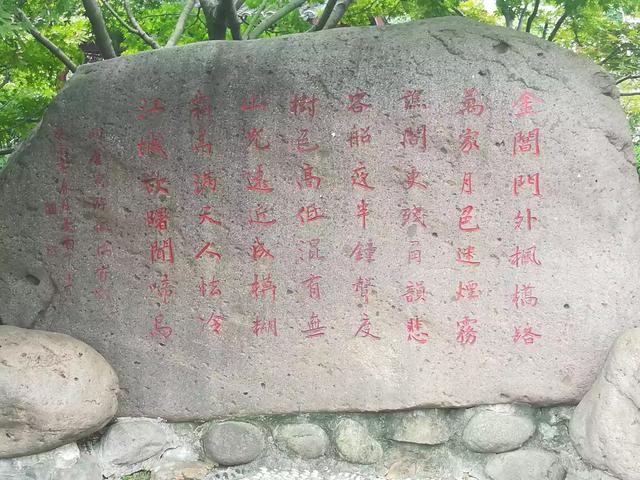 金閶門外楓橋路
萬家月色迷煙霧
譙閣更殘角韻悲
客船夜半鐘聲度
樹色高低混有無
山光遠近成模糊
霜滿天人怯冷
江城欲曙聞啼烏